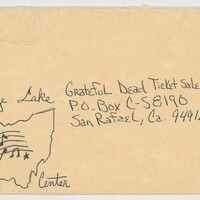 Lake
Grateful Dead Ticket Sale
P.O. Box C-S8190
San Rafael, Ca. 9491
Center